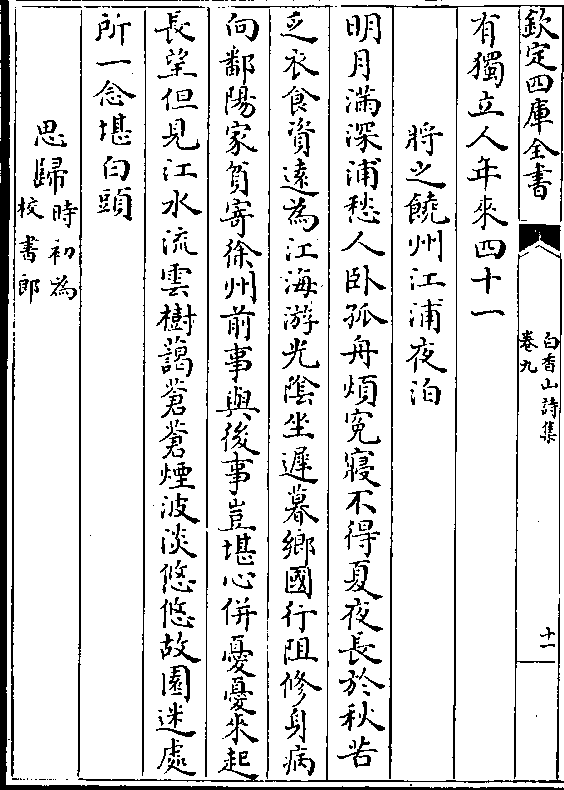 欽定四庫全書
白香山詩集
卷九
十一
有獨立人年來四十一
將之饒州江浦夜泊
明月滿深浦愁人臥孤舟煩寃寢不得夏夜長於秋苦
乏衣食資遠為江海游光陰坐遲暮鄉國行阻修身病
向鄱陽家貧寄徐州前事與後事豈堪心併憂憂來起
長望但見江水流雲樹藹蒼蒼煙波淡悠悠故園迷處
所一念堪白頭
思歸時初為
校書郎